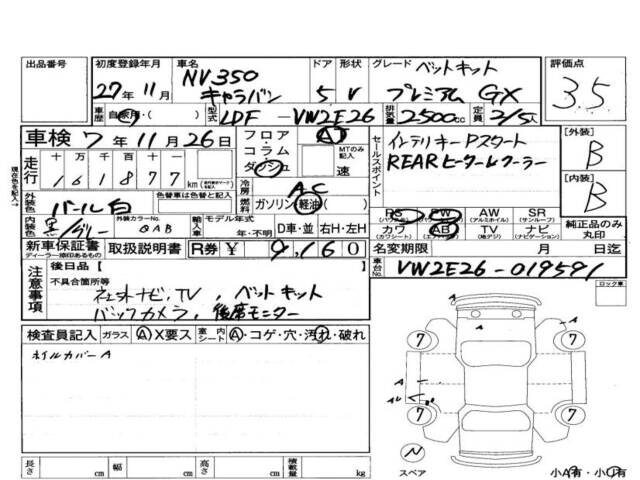 出品番号
初度登録年月
27年 11月
車名
NV350
キャラバン
ドア
5
形状
V
グレード ベットキット
プレミアム GX
評価点
3.5
車歴 自家用・( )
型式 LDF -VW2E26
排気量 2500cc
定員 2/5人
車検 7年 11月 26日
走行
十 万 千 百 十 一
1 6 1 8 7 7
km
フロア
コラム
ダッシュ
AT
MTのみ記入
速
冷房 AC
燃料 ガソリン・軽油( )
セールスポイント
インテリキー Pスタート
REARヒーター レ クーラー
【外装】
B
【内装】
B
現在色を記入→
外装色 パール白
色替車は色替と記入
内装色 黒/グレー
外装カラーNo. QAB
輸入車 モデル年式
年・不明
D車・並
右H・左H
PS
(パワステ)
PW
(パワーウィンドウ)
AW
(アルミホイル)
SR
(サンルーフ)
カワ
(カワシート)
AB
(エアバッグ)
TV
(地デジ)
ナビ
(ナビゲーション)
純正品のみ
丸印
新車保証書
ディーラー捺印あるもの
取扱説明書
R券 ¥ 9,160
名変期限 月 日迄
車台No. VW2E26-019591
注意事項
後日品【 】
不具合箇所等
社外ナビ,TV , ベットキット
バックカメラ , 後席モニター
ロック車
検査員記入
ガラス
A X要ス
室内シート
A・コゲ・穴・汚れ・破れ
ホイルカバーA
A
7
7
A
A
7
7
N
スペア
長さ cm
幅 cm
高さ cm
積載量 kg
小A有・小U有